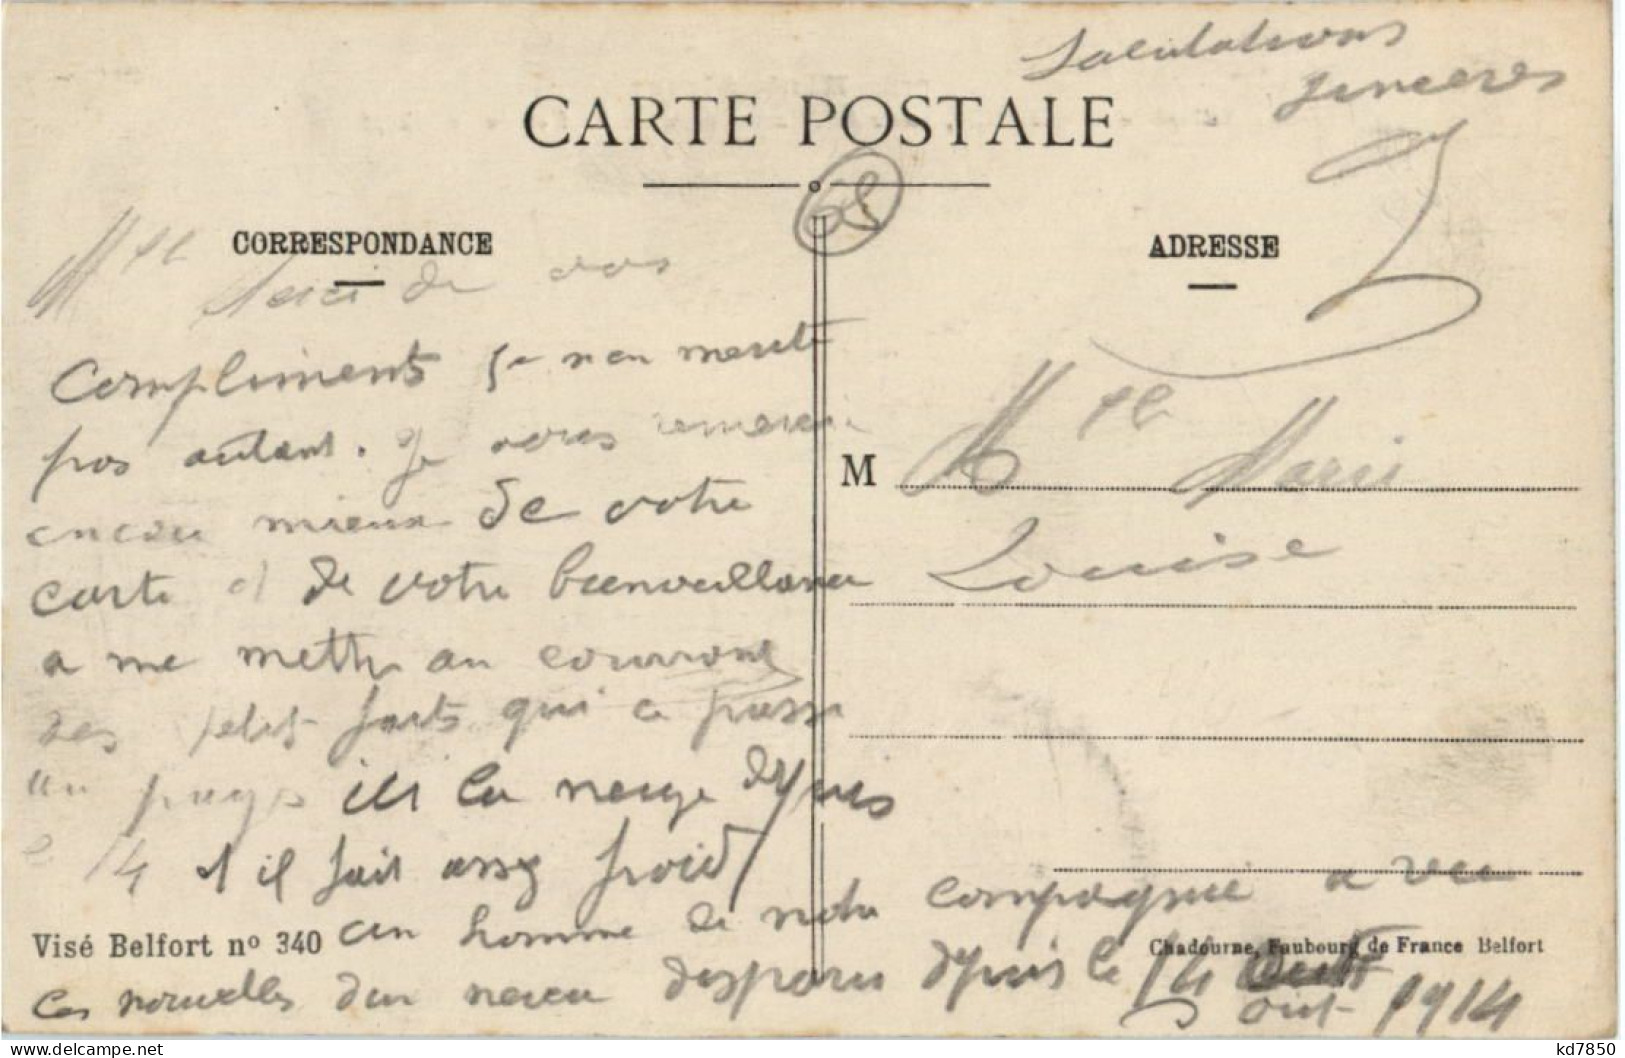 Salutations
sinceres
CARTE POSTALE
CORRESPONDANCE
ADRESSE
Mlle Merci de vos
compliments je n en merite
pas autant. Je vous remercie
encore mieux de votre
carte et de votre bienveillance
a me mettre au courrant
des petits faits qui ce passe
au pays ici la neige depuis
le 14 et il fait assez froid
un homme de notre compagnie a reu
des nouvelles d un neveu disparu depuis le 14
out 1914
M Mlle Marie
Louise
Visé Belfort nº 340
Chadourne, Faubourg de France Belfort
kd7850